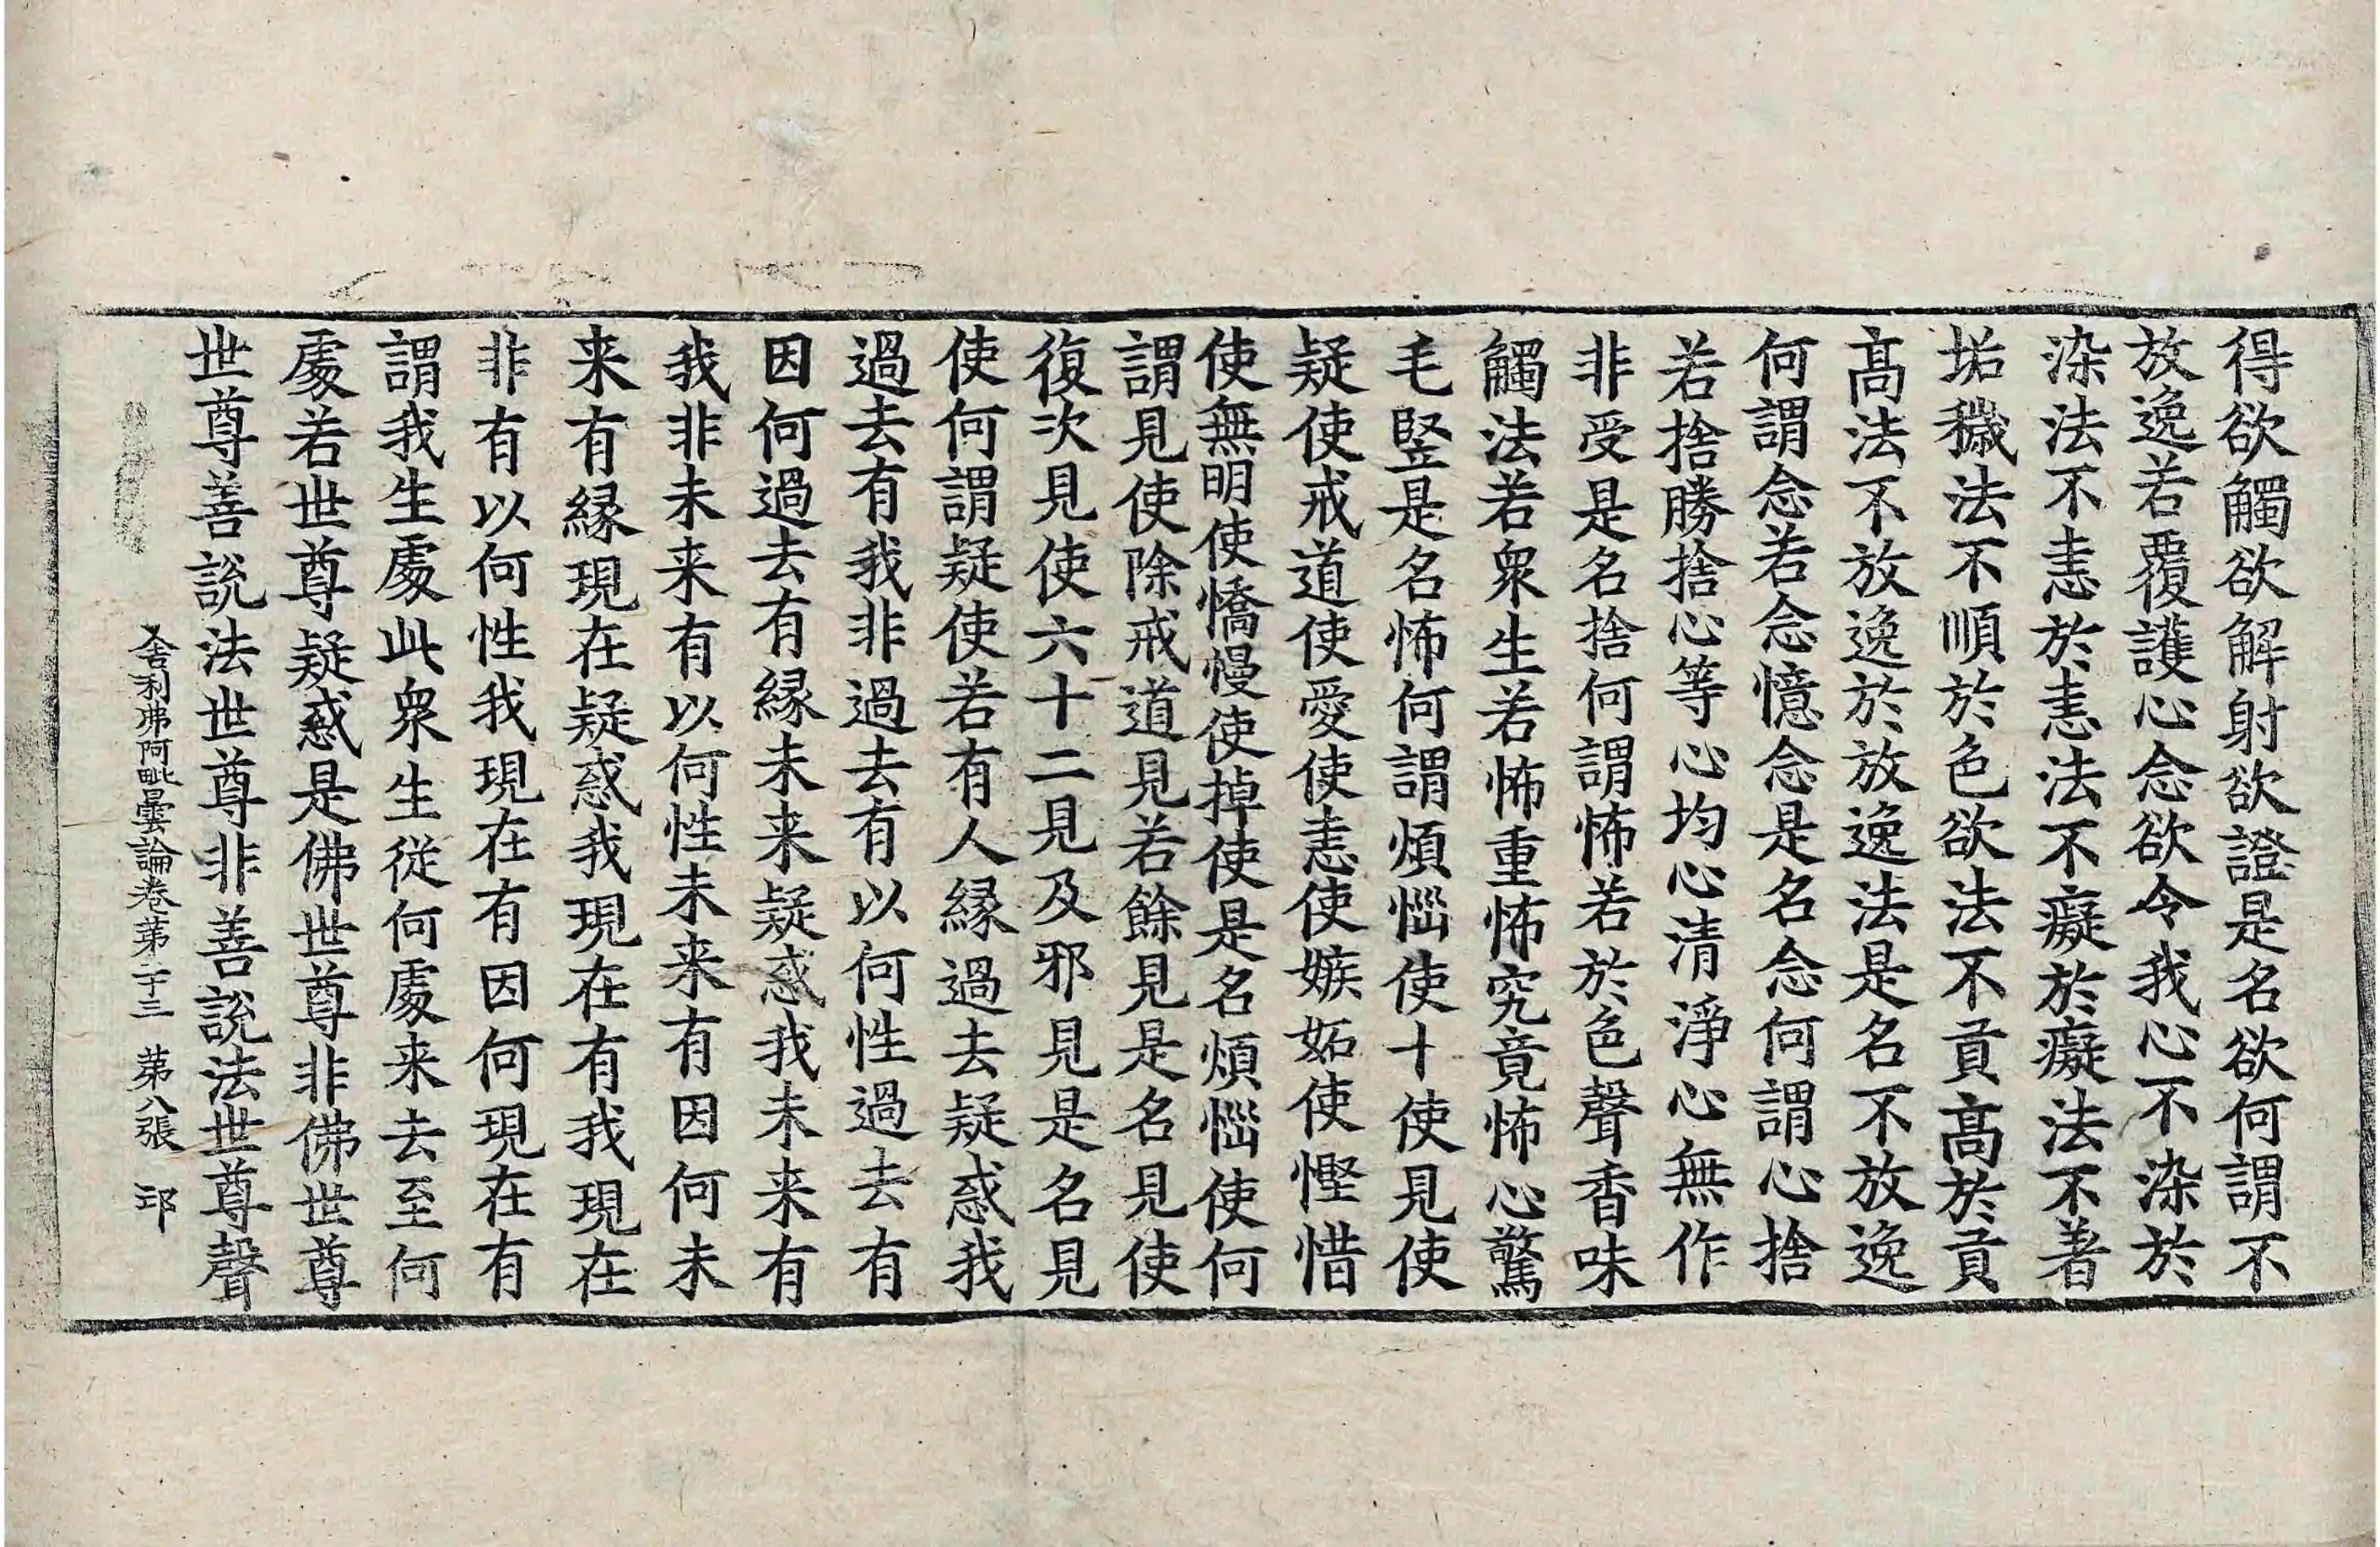 得欲觸欲解射欲證是名欲何謂不
放逸若覆護心念欲令我心不染於
染法不恚於恚法不癡於癡法不著
垢穢法不順於色欲法不貢高於貢
髙法不放逸於放逸法是名不放逸
何謂念若念憶念是名念何謂心捨
若捨勝捨心等心均心清淨心無作
非受是名捨何謂怖若於色聲香味
觸法若衆生若怖重怖究竟怖心驚
毛竪是名怖何謂煩惱使十使見使
疑使戒道使愛使恚使嫉妬使慳惜
使無明使憍慢使掉使是名煩惱使何
謂見使除戒道見若餘見是名見使
復次見使六十二見及邪見是名見
使何謂疑使若有人縁過去疑惑我
過去有我非過去有以何性過去有
因何過去有縁未来疑惑我未来有
我非未来有以何性未来有因何未
来有縁現在疑惑我現在有我現在
非有以何性我現在有因何現在有
謂我生處此衆生従何處来去至何
處若世尊疑惑是佛世尊非佛世尊
世尊善說法世尊非善說法世尊聲
舍利弗阿毗曇論卷苐二十三 苐八張 邛